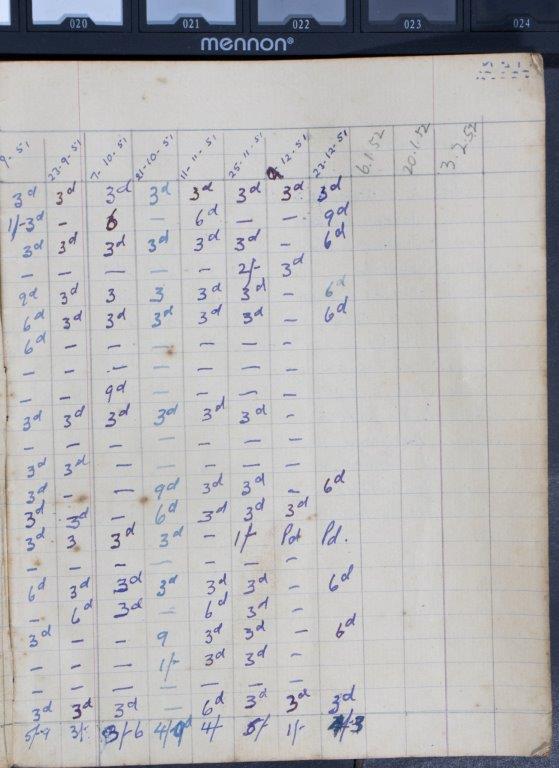 020 021 022 023 024
mennon®
9-51 23-9-51 7-10-51 21-10-51 11-11-51 25-11-51 9-12-51 22-12-51 6.1.52 20.1.52 3.2.52
3d 3d 3d 3d 3d 3d 3d 3d
1/-3d - 6 - 6d - - 9d
3d 3d 3d 3d 3d 3d - 6d
- - - - - 2/- 3d
9d 3d 3 3 3d 3d - 6d
6d 3d 3d 3d 3d 3d - 6d
6d - - - - - -
- - - - - - -
- - 9d - - - -
3d 3d 3d 3d 3d 3d -
- - - - - - -
3d 3d - - - - -
3d - - 9d 3d 3d - 6d
3d 3d - 6d 3d 3d 3d
3d 3 3d 3d - 1/- Pd Pd.
- - - - - - -
6d 3d 3d 3d 3d 3d - 6d
- 6d 3d - 6d 3d -
3d - - 9 3d 3d - 6d
- - - 1/- 3d 3d -
- - - - - - -
3d 3d 3d - 6d 3d 3d 3d
5/-9 3/- 3/-6 4/ 4/- 5/- 1/- /3